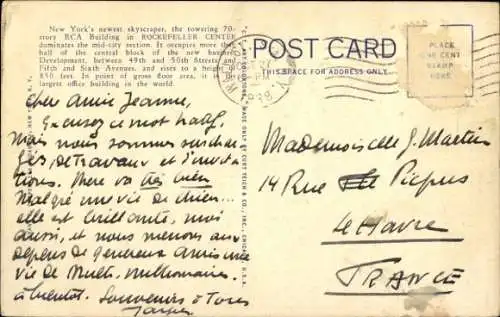 New York's newest skyscraper, the towering 70-
story RCA Building in ROCKEFELLER CENTER
dominates the mid-city section. It occupies more than
half of the central block of the new business
Development, between 49th and 50th Streets and
Fifth and Sixth Avenues, and rises to a height of
850 feet. In point of gross floor area, it is the
largest office building in the world.
POST CARD
THIS SPACE FOR ADDRESS ONLY
PLACE
ONE CENT
STAMP
HERE
Cher Amie Jeanne,
Excusez ce mot hatif,
Mais nous sommes surchar-
gés, de Travaux et d'invita-
tions. Mere va très bien
Malgré une vie de chien...
elle est brillante, moi
aussi, et nous menons aux
dépens de généreux Amis une
vie de Multi-millionaires.
à bientot. Souvenirs à Tous
Mademoiselle J. Martin
14 Rue Picpus
Le Havre
FRANCE